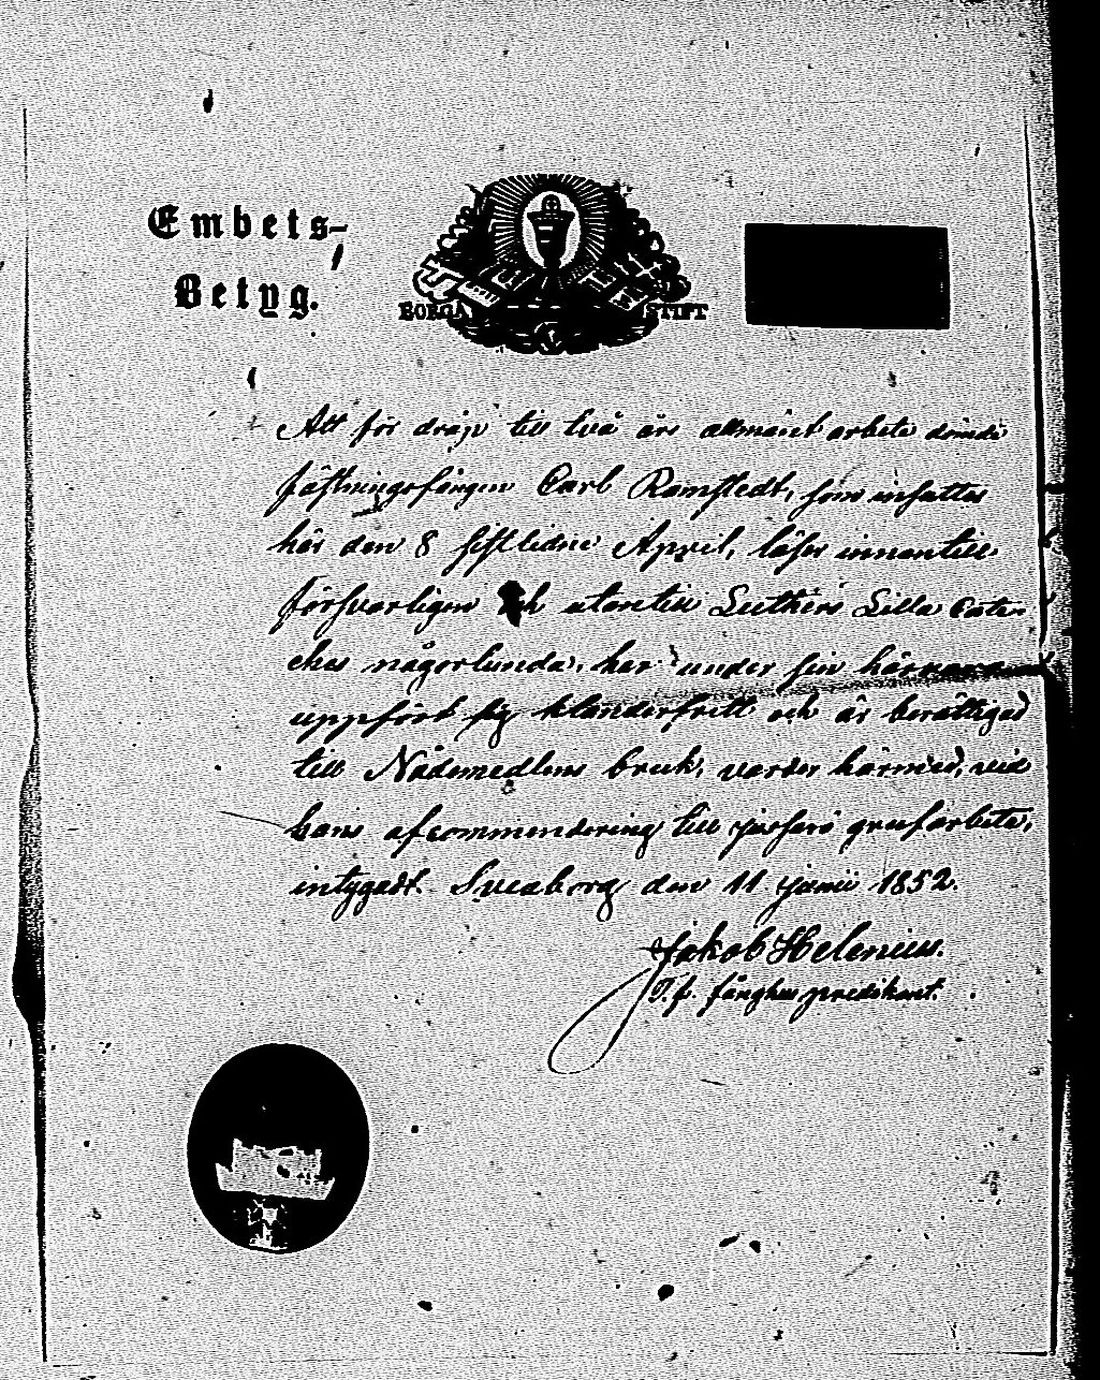 Embets-
Betyg.
BORGÅ STIFT
Att för dråp till två års allmänt arbete dömde
fästningsfången Carl Ramstedt, som insattes
här den 8 sistlidne April, läser innantill
försvarligen och utantill Luthers Lilla Cate-
ches någorlunda, har under sin härvaro
uppfört sig klanderfritt och är berättigad
till Nådemedlens bruk, varder härmed, vid
hans afcommendering till grufarbete,
intygadt. Sveaborg den 11 Junii 1852.
Jakob Helenius.
T.f. fånghus predikant.